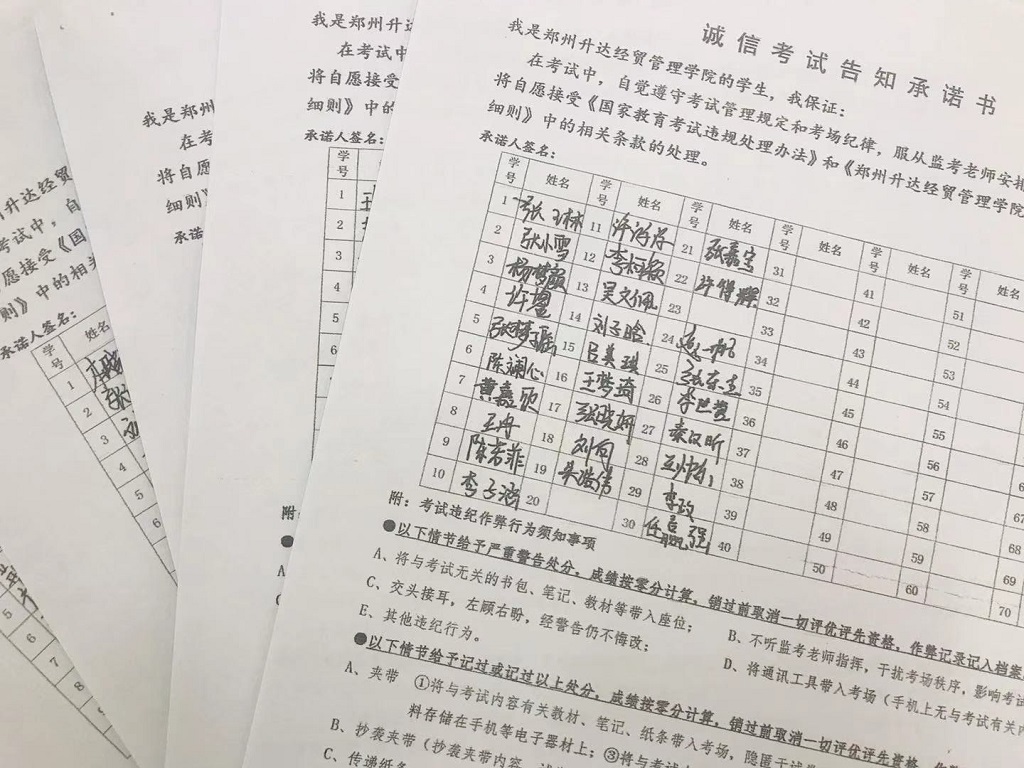 诚信考试告知承诺书
我是郑州升达经贸管理学院的学生，我保证：
在考试中，自觉遵守考试管理规定和考场纪律，服从监考老师安排
将自愿接受《国家教育考试违规处理办法》和《郑州升达经贸管理学院
细则》中的相关条款的处理。
承诺人签名：
学号 姓名 学号 姓名 学号 姓名 学号 姓名 学号 姓名 学号 姓名
1 11 21 张嘉宝 31 41 51
2 张小雪 12 李柯颖 22 32 42 52
3 杨梦颖 13 吴文佩 23 33 43 53
4 许盟 14 刘子晗 24 34 44 54
5 张梦瑶 15 吕美琪 25 35 45 55
6 陈澜心 16 王梦琦 26 李世莹 36 46 56
7 黄嘉欣 17 张晓娟 27 秦汉昕 37 47 57
8 王丹 18 刘向 28 38 48 58
9 陈若菲 19 吴浩伟 29 李玫 39 49 59
10 李子涵 20 30 任赢强 40 50 60
68
69
70
附：考试违纪作弊行为须知事项
●以下情节给予严重警告处分，成绩按零分计算，销过前取消一切评优评先资格，作弊记录记入档案
A、将与考试无关的书包、笔记、教材等带入座位；
B、不听监考老师指挥，干扰考场秩序，影响考试
C、交头接耳，左顾右盼，经警告仍不悔改；
D、将通讯工具带入考场（手机上无与考试有关内
E、其他违纪行为。
●以下情节给予记过或记过以上处分，成绩按零分计算，销过前取消一切评优评先资格，作
A、夹带 ①将与考试内容有关教材、笔记、纸条带入考场，隐匿于试
料存储在手机等电子器材上；③将与考试
B、抄袭夹带（抄袭夹带内容
C、传递纸条
我是郑州升达
在考试中
将自愿接受
细则》中的
承诺人签名：
学号
1
2
3
4
5
6
7
8
9
10
附
●
A
我是郑州升
在考
将自愿接受
细则》
承诺
升达经贸
考试中，自
愿接受《国
则》中的相关
承诺人签名：
学号 姓名
1
2
3
4
5
6
5
6
7
8
9